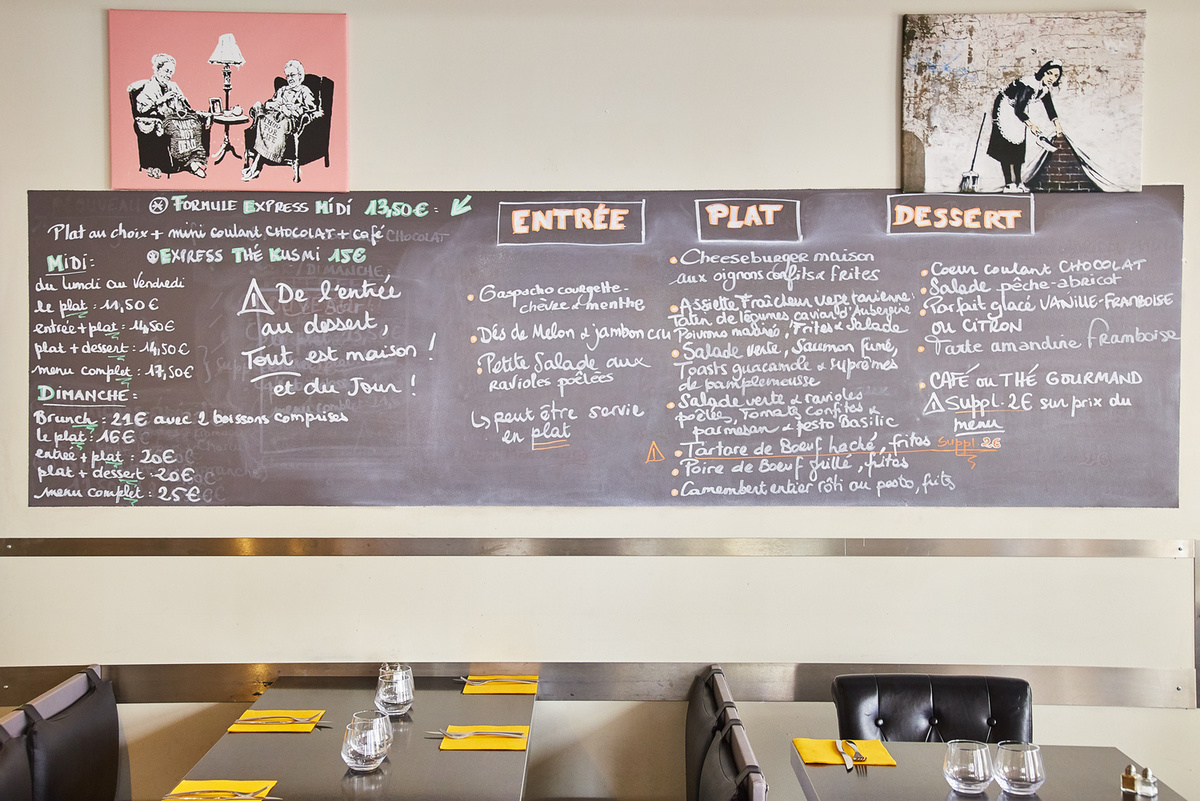 Formule Express Midi 13,50€ :
Plat au choix + mini coulant CHOCOLAT + café
Express Thé Kusmi 15€
Midi :
du lundi au Vendredi
le plat : 11,50€
entrée + plat : 14,50€
plat + dessert : 14,50€
menu complet : 17,50€
Dimanche :
Brunch : 21€ avec 2 boissons comprises
le plat : 16€
entrée + plat : 20€
plat + dessert : 20€
menu complet : 25€
De l'entrée
au dessert,
Tout est maison !
et du Jour !
ENTRÉE
Gaspacho courgette-
chèvre & menthe
Dés de Melon & jambon cru
Petite Salade aux
ravioles poêlées
peut être servie
en plat
PLAT
Cheeseburger maison
aux oignons confits & frites
Assiette Fraîcheur végétarienne :
Tatin de légumes caviar d'Aubergine
Poivrons mariné, Frites & Salade
Salade verte, Saumon fumé,
Toasts guacamole & suprêmes
de pamplemousse
Salade verte & ravioles
poêlée, Tomates confites &
parmesan & pesto Basilic
Tartare de Boeuf haché, frites Suppl. 2€
Poire de Boeuf grillé, frites
Camembert entier rôti au pesto, frits
DESSERT
Coeur coulant CHOCOLAT
Salade pêche-abricot
Parfait glacé VANILLE-FRAMBOISE
ou CITRON
Tarte amandine Framboise
CAFÉ ou THÉ GOURMAND
Suppl. 2€ sur prix du
menu